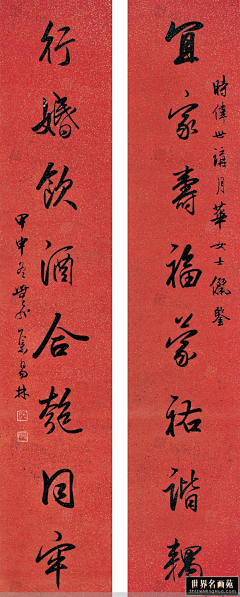 時偉世講月華女士儷鑒
宜家壽福蒙祐諧耦
行婚飲酒合匏同牢
甲申冬 集易林
世界名画苑